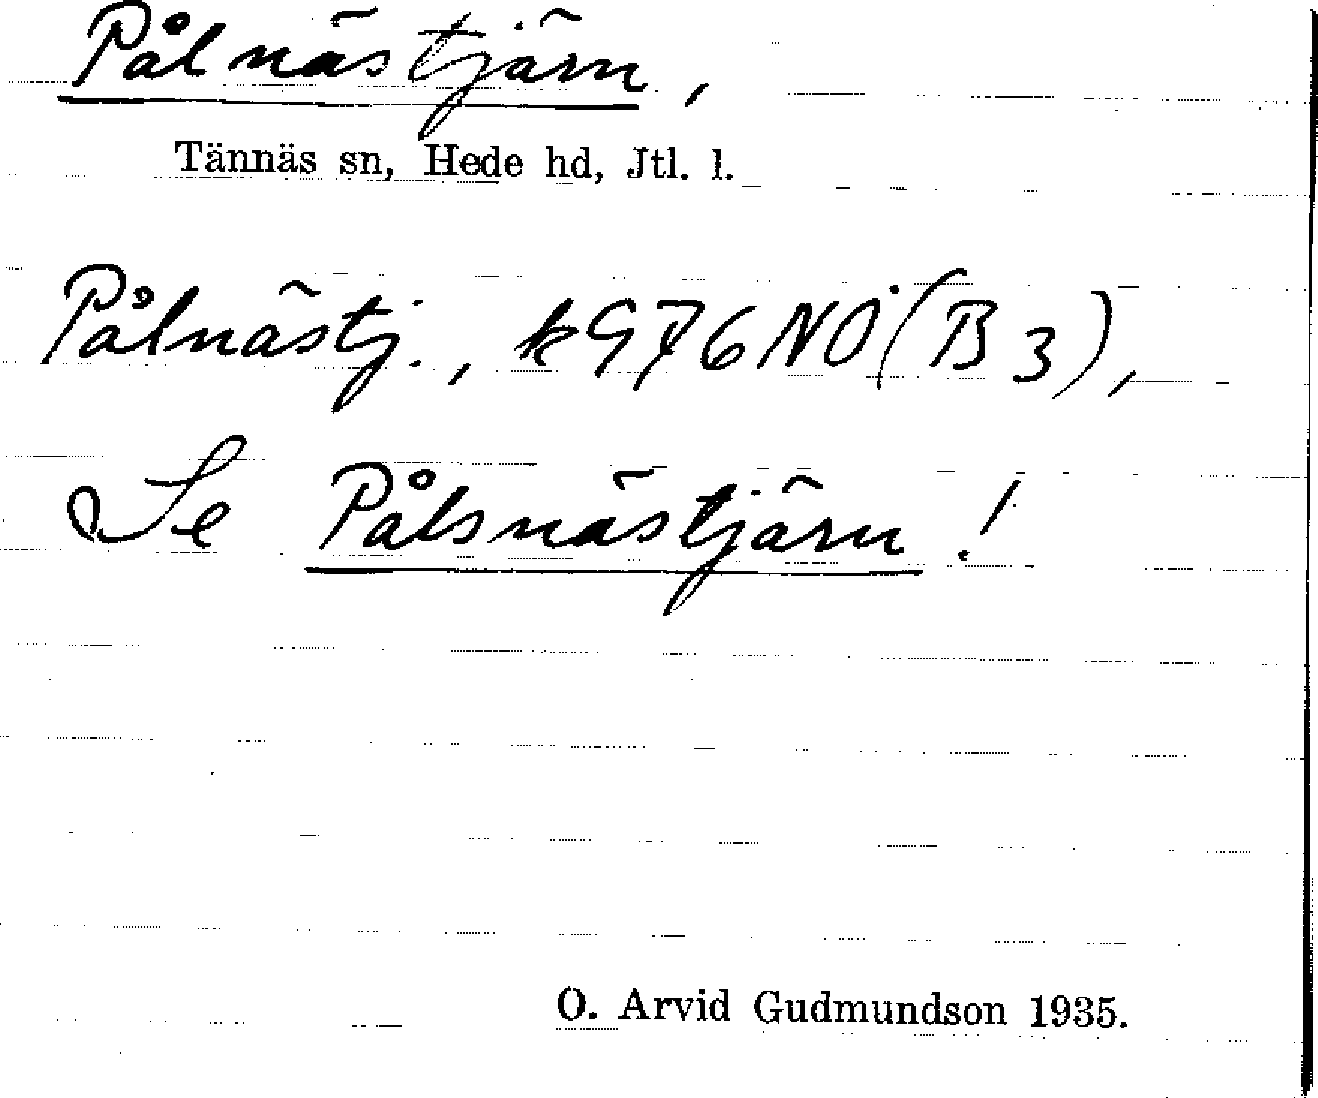 Pålnästjärn,
Tännäs sn, Hede hd, Jtl. l.
Pålnästj., k976NÖ(B3),
Se Pålsnästjärn!
O. Arvid Gudmundson 1935.